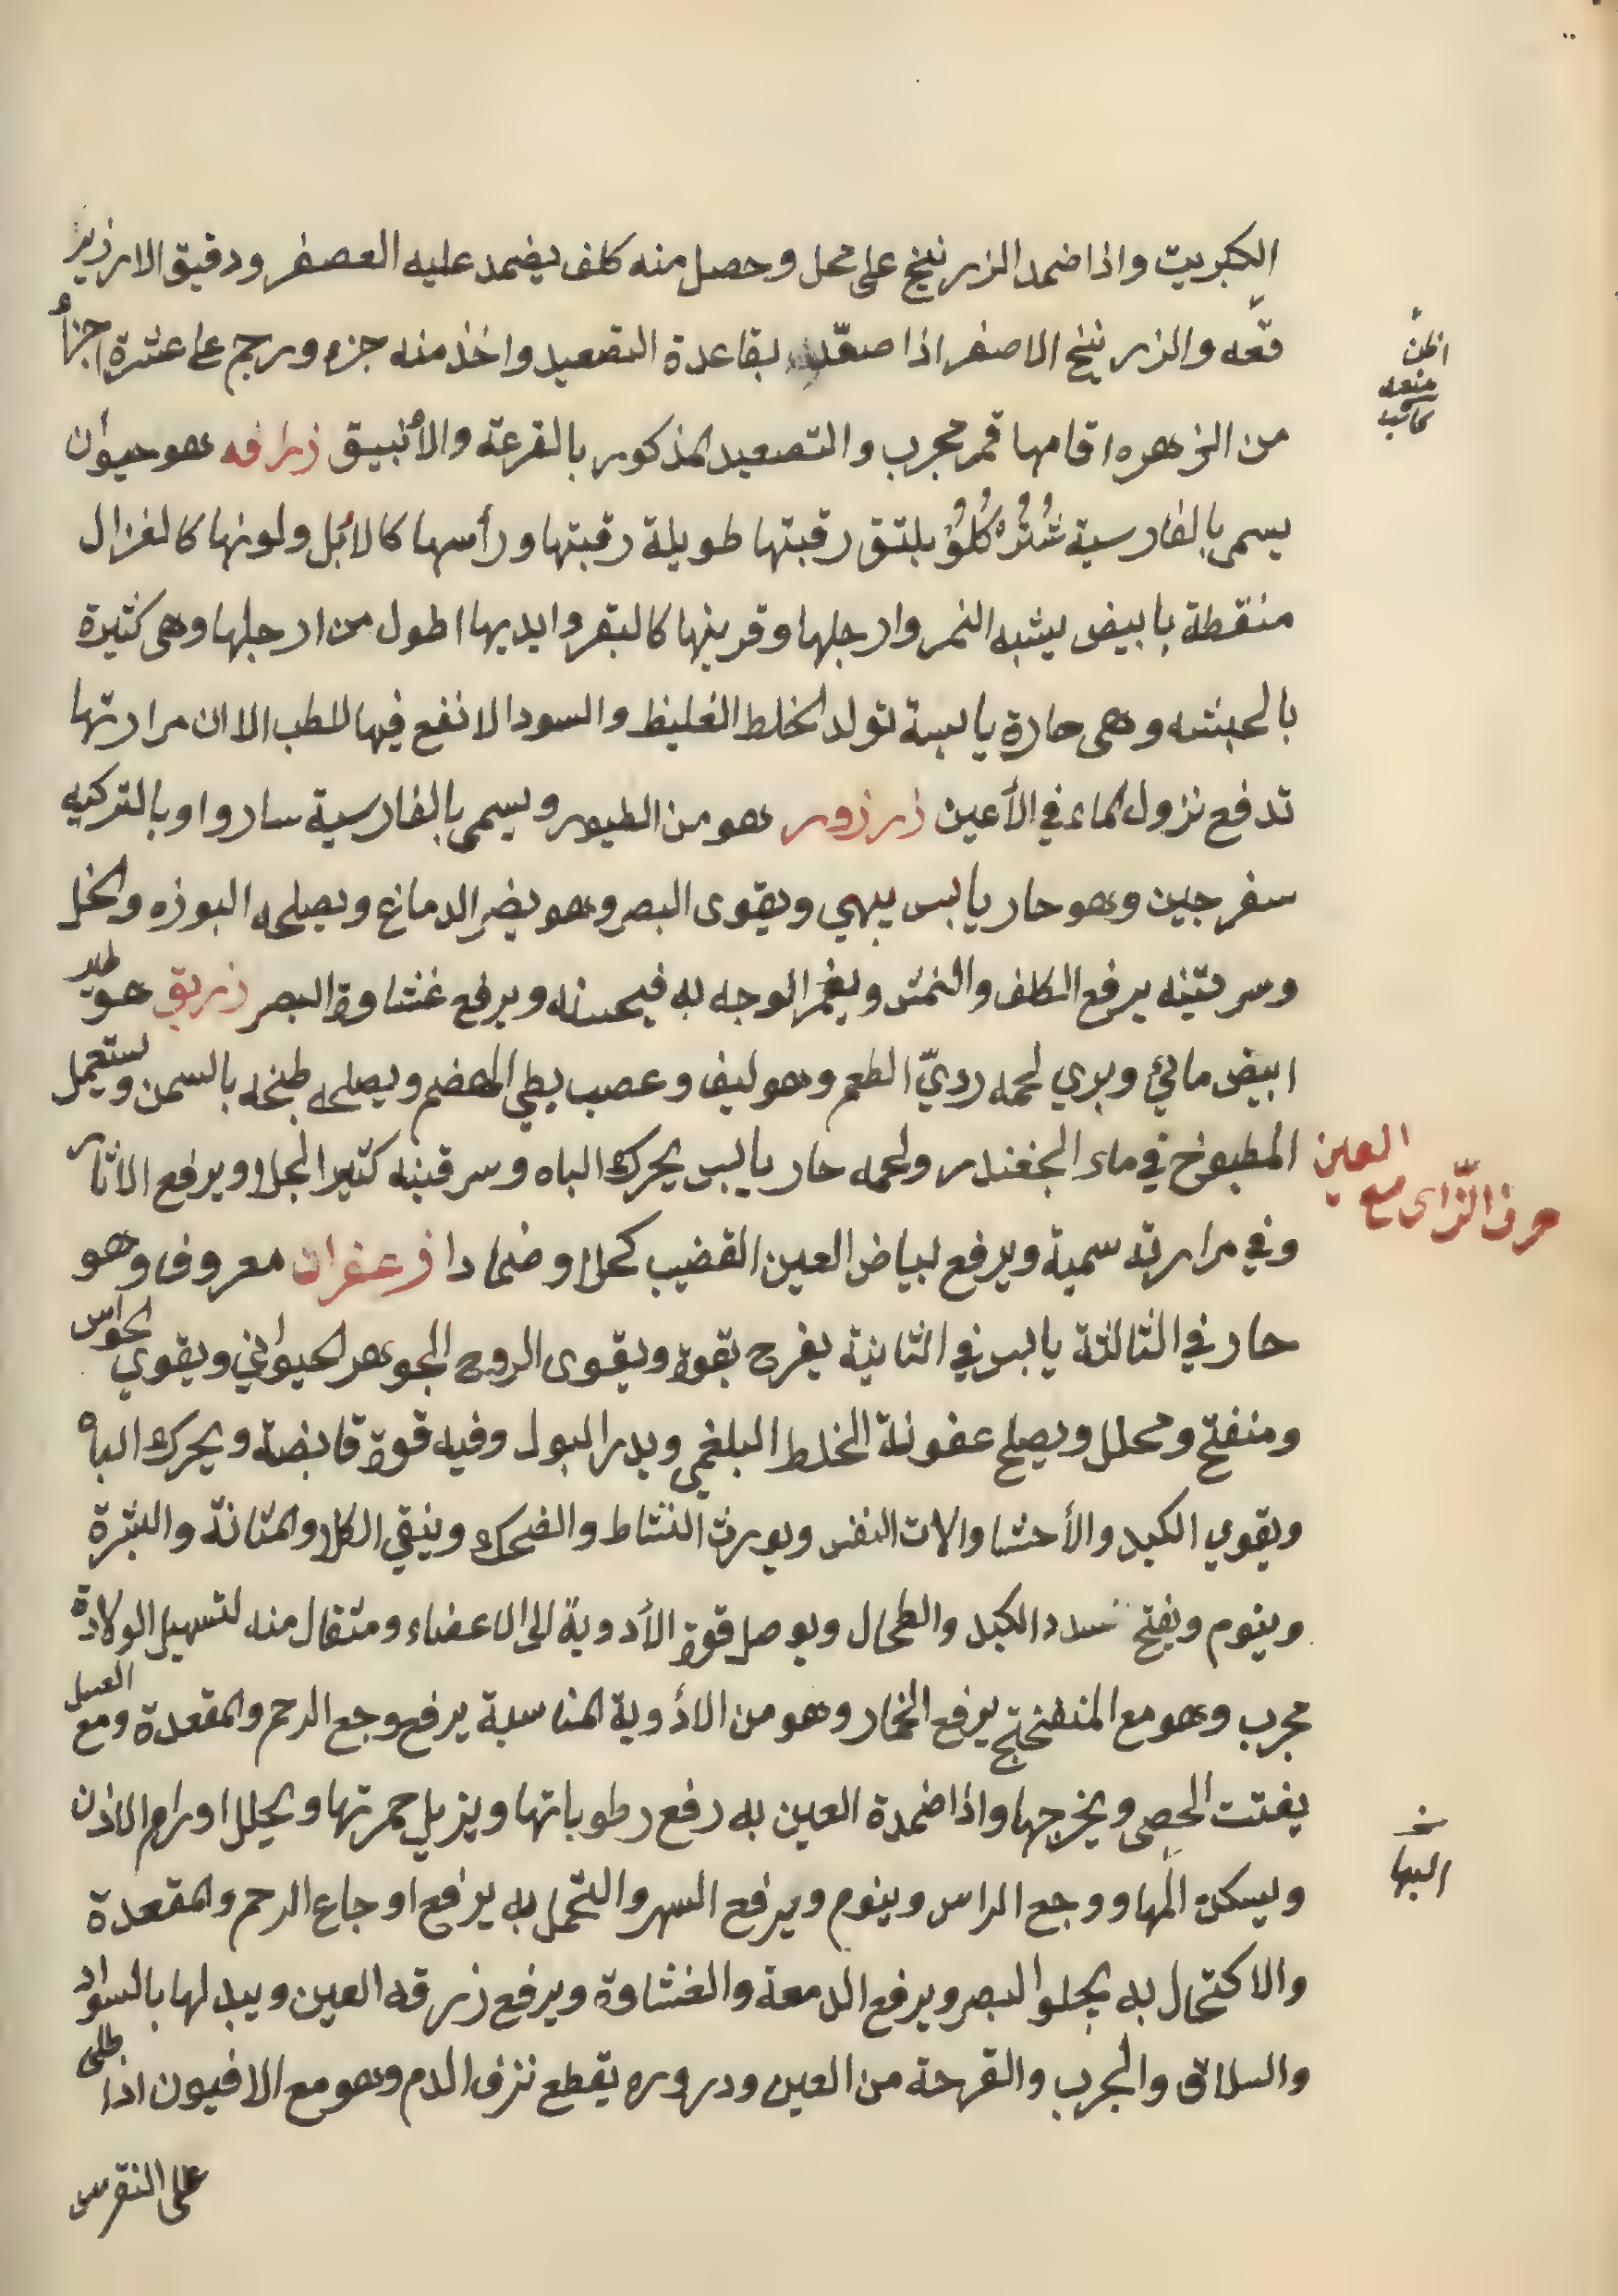 الكبريت واذا ضمد الزرنيخ على محل وحصل منه كلف يضمد عليه العصفر ودقيق الارز ير
فعه والزرنيخ الاصفر اذا صعّد بقاعدة التصعيد واخذ منه جزء ورجم على عشرة اجزأ
اظن
منعه
كاتب
من الزهره اقامها قمر مجرب والتصعيد المذكور بالقرعة والأنبيق زرافه هو حيوان
يسمى بالفارسية شُتُرْ كُلُوْ بلتق رقبتها طويلة رقبتها ورأسها كالائل ولونها كالغزال
منقطة بابيض يشبه النمر وارجلها وقرينها كالبقر وايديها اطول من ارجلها وهى كثيرة
بالحبشه وهى حارة يابسة تولد الخلط الغليظ والسودا لا نفع فيها للطب الا ان مرارتها
تدفع نزول الماء في الأعين زرزور هو من الطيور ويسمى بالفارسية ساروا وبالتركيه
سغرجين وهو حار يابس يبهي ويقوى البصر وهو يضر الدماغ ويصلحه البوزه والخل
وسرقينه يرفع الكلف والنمش ويغمر الوجه به فيحسنه ويرفع غشاوة البصر زريق هو طير
ابيض مائي وبري لحمه رديّ الطعم وهو ليف وعصب بطي الهضم ويصلحه طبخه بالسمن ويستعمل
المطبوخ في ماء الجغندر ولحمه حار يابس يحرك الباه وسرقينه كثير الجلا ويرفع الاثار
حرف الزّاى مع العين
وفي مرارته سمية ويرفع بياض العين القضيب كحلا وضمادا زعفران معروف وهو
حار في الثالثة يابس في الثانية يفرح بقوة ويقوى الروح الجوهر الحيواني ويقوي الحواس
ومنفتح ومحلل ويصلح عفونة الخلط البلغمي ويدر البول وفيه قوة قابضة ويحرك الباه
ويقوي الكبد والأحشا والات النفس ويورث النشاط والضحك وينقي الكلا والمثانة والبشرة
وينوم ويفتح سدد الكبد والطحال ويوصل قوة الأدوية الى الاعضاء ومثقال منه لتسهيل الولادة
مجرب وهو مع المنفختج يرفع الخمار وهو من الادوية المناسبة يرفع وجع الرحم والمقعدة ومع العسل
يفتت الحصى ويخرجها واذا ضمدة العين به رفع رطوباتها ويزيل حمرتها ويحلل اورام الاذن
ويسكن المها ووجع الراس وينوم ويرفع السهر والتحمل به يرفع اوجاع الرحم والمقعدة
البها
والاكتحال به يجلوا البصر ويرفع الدمعة والغشاوة ويرفع زرقه العين ويبدلها بالسواد
والسلاق والجرب والقرحة من العين ودروره يقطع نزف الدم وهو مع الافيون اذا طلى
على النقرس